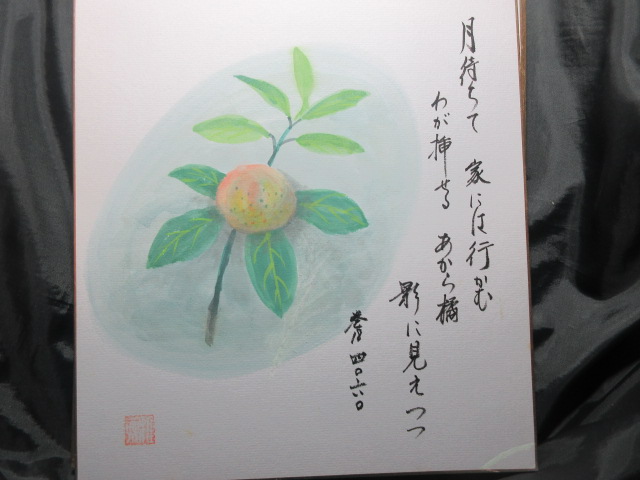 月待ちて 家には行かむ
わが挿せる あから橘
影に見えつつ
巻十八 四〇六〇